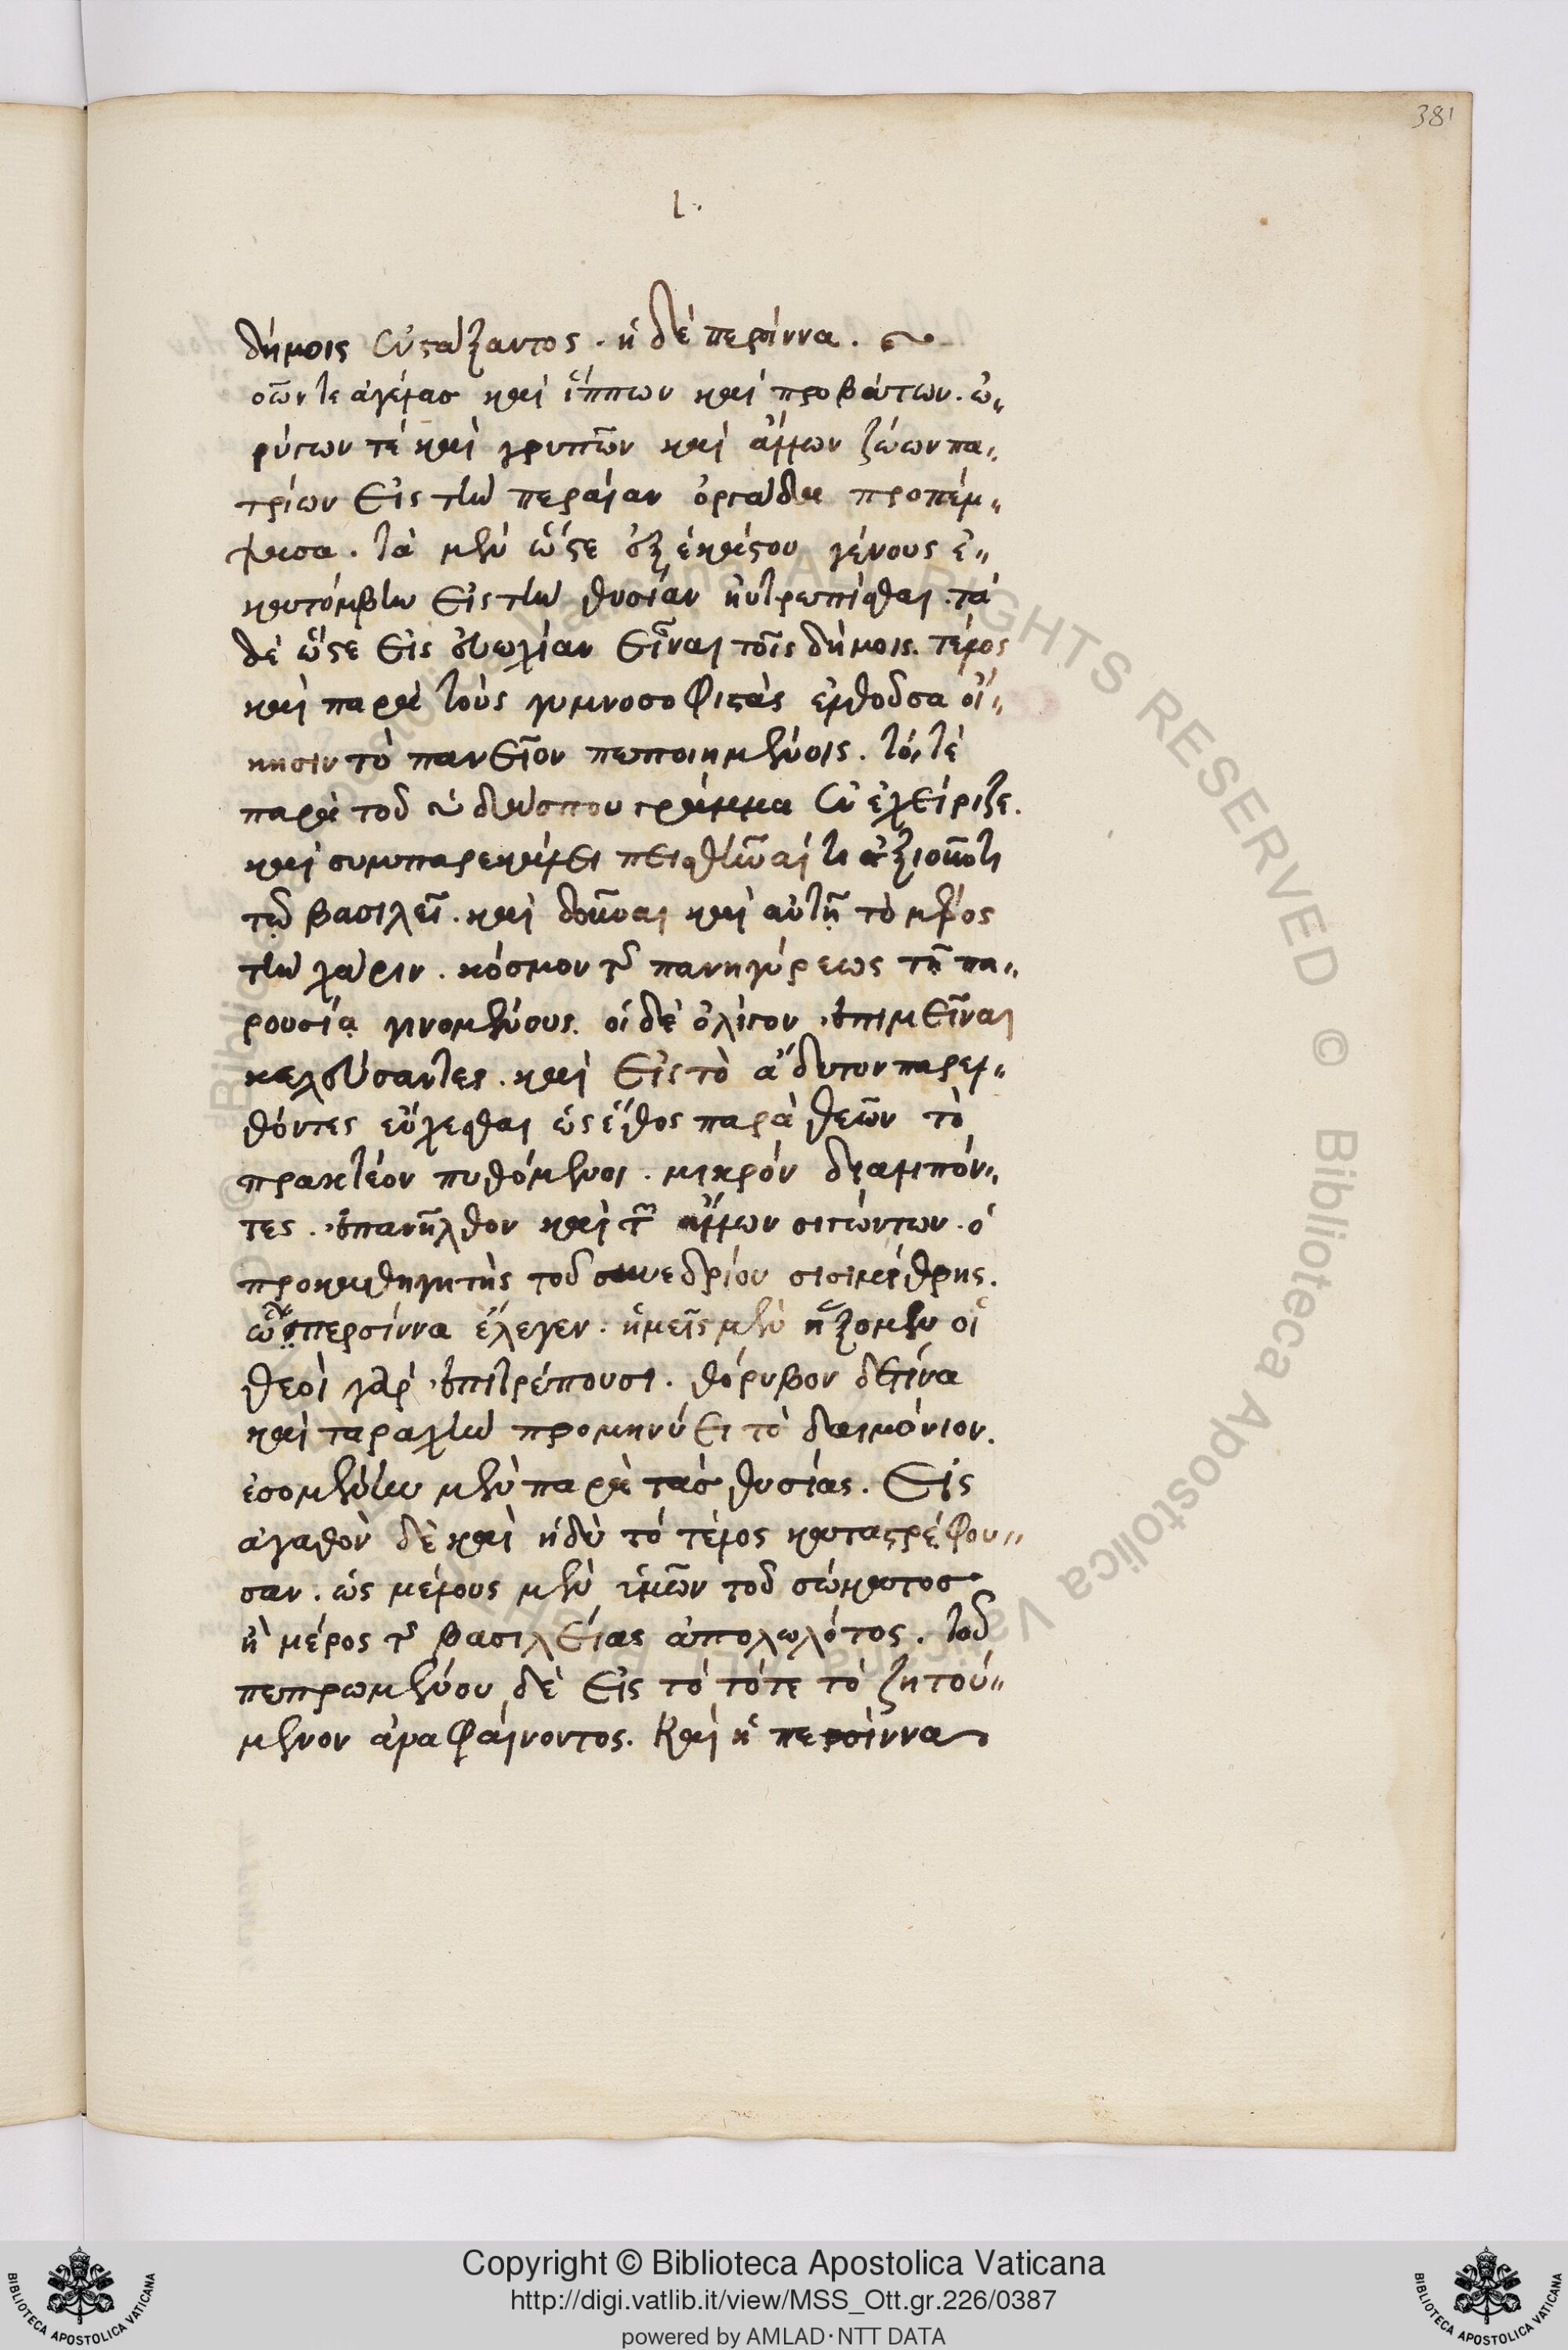 381
ι··
δήμοις ἐνστάξαντος. ἡ δὲ περσίννα.
βοῶν τε ἀγέλας καὶ ἵππων καὶ προβάτων. ὠ,,
ρύγων τὲ καὶ γρυπῶν καὶ ἄλλων ζώων πα,,
τρίων εἰς τὴν περαίαν ὀργάδα προπέμ,,
ψασα. τὰ μὲν ὥστε ἐξ ἑκάστου γένους ἑ,,
κατόμβην εἰς τὴν θυσίαν ηὐτρεπίσθαι. τὰ
δὲ ὥστε εἰς εὐωχίαν εἶναι τοῖς δήμοις. τέλος
καὶ παρὰ τοὺς γυμνοσοφιστὰς ἐλθοῦσα οἴ,,
κησιν τὸ πανεῖον πεποιημένοις. τό, τὲ
παρὰ τοῦ ὑδάσπου γράμμα ἐνεχείριζε.
καὶ συμπαρεκάλει πεισθῆναί τε ἀξιοῦντι
τῷ βασιλεῖ. καὶ δοῦναι καὶ αὐτῇ τὸ μέρος
τὴν χάριν. κόσμον τῆς πανηγύρεως τῇ πα,,
ρουσίᾳ γινομένους. οἱ δὲ ὀλίγον ἐπιμεῖναι
κελεύσαντες. καὶ εἰς τὸ ἄδυτον παρελ,,
θόντες εὔχεσθαι ὡς ἔθος παρὰ θεῶν τὸ
πρακτέον πυθόμενοι. μικρόν διαλιπόν,,
τες. ἐπανῆλθον καὶ τῶν ἄλλων σιγώντων. ὁ
προκαθηγητὴς τοῦ συνεδρίου σισιμίθρης.
ὦ περσίννα ἔλεγεν. ἡμεῖς μὲν ἥξομεν οἱ
θεοὶ γὰρ ἐπιτρέπουσι. θόρυβον δέ τινα
καὶ ταραχὴν προμηνύει τὸ δαιμόνιον.
ἐσομένην μὲν παρὰ τὰς θυσίας. εἰς
ἀγαθὸν δὲ καὶ ἡδὺ τὸ τέλος καταστρέφου,,
σαν. ὡς μέλους μὲν ὑμῶν τοῦ σώματος
ἢ μέρος τῆς βασιλείας ἀπολωλότος. τοῦ
πεπρωμένου δὲ εἰς τὸ τότε τὸ ζητού,,
μενον ἀναφαίνοντος. Καὶ ἡ περσίννα
Copyright © Biblioteca Apostolica Vaticana
http://digi.vatlib.it/view/MSS_Ott.gr.226/0387
powered by AMLAD·NTT DATA